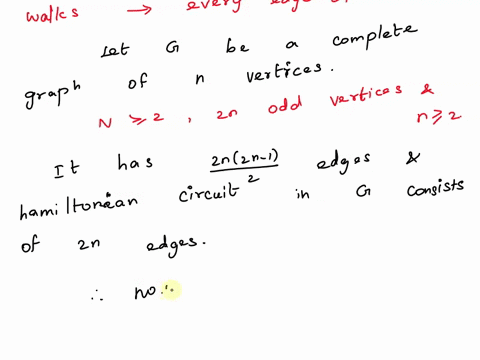 walks → every edge
Let G be a complete
graph of n vertices.
N ≥ 2, 2n odd vertices &
n ≥ 2
It has 2n(2n-1)/2 edges &
hamiltonian circuit in G consists
of 2n edges.
∴ no.